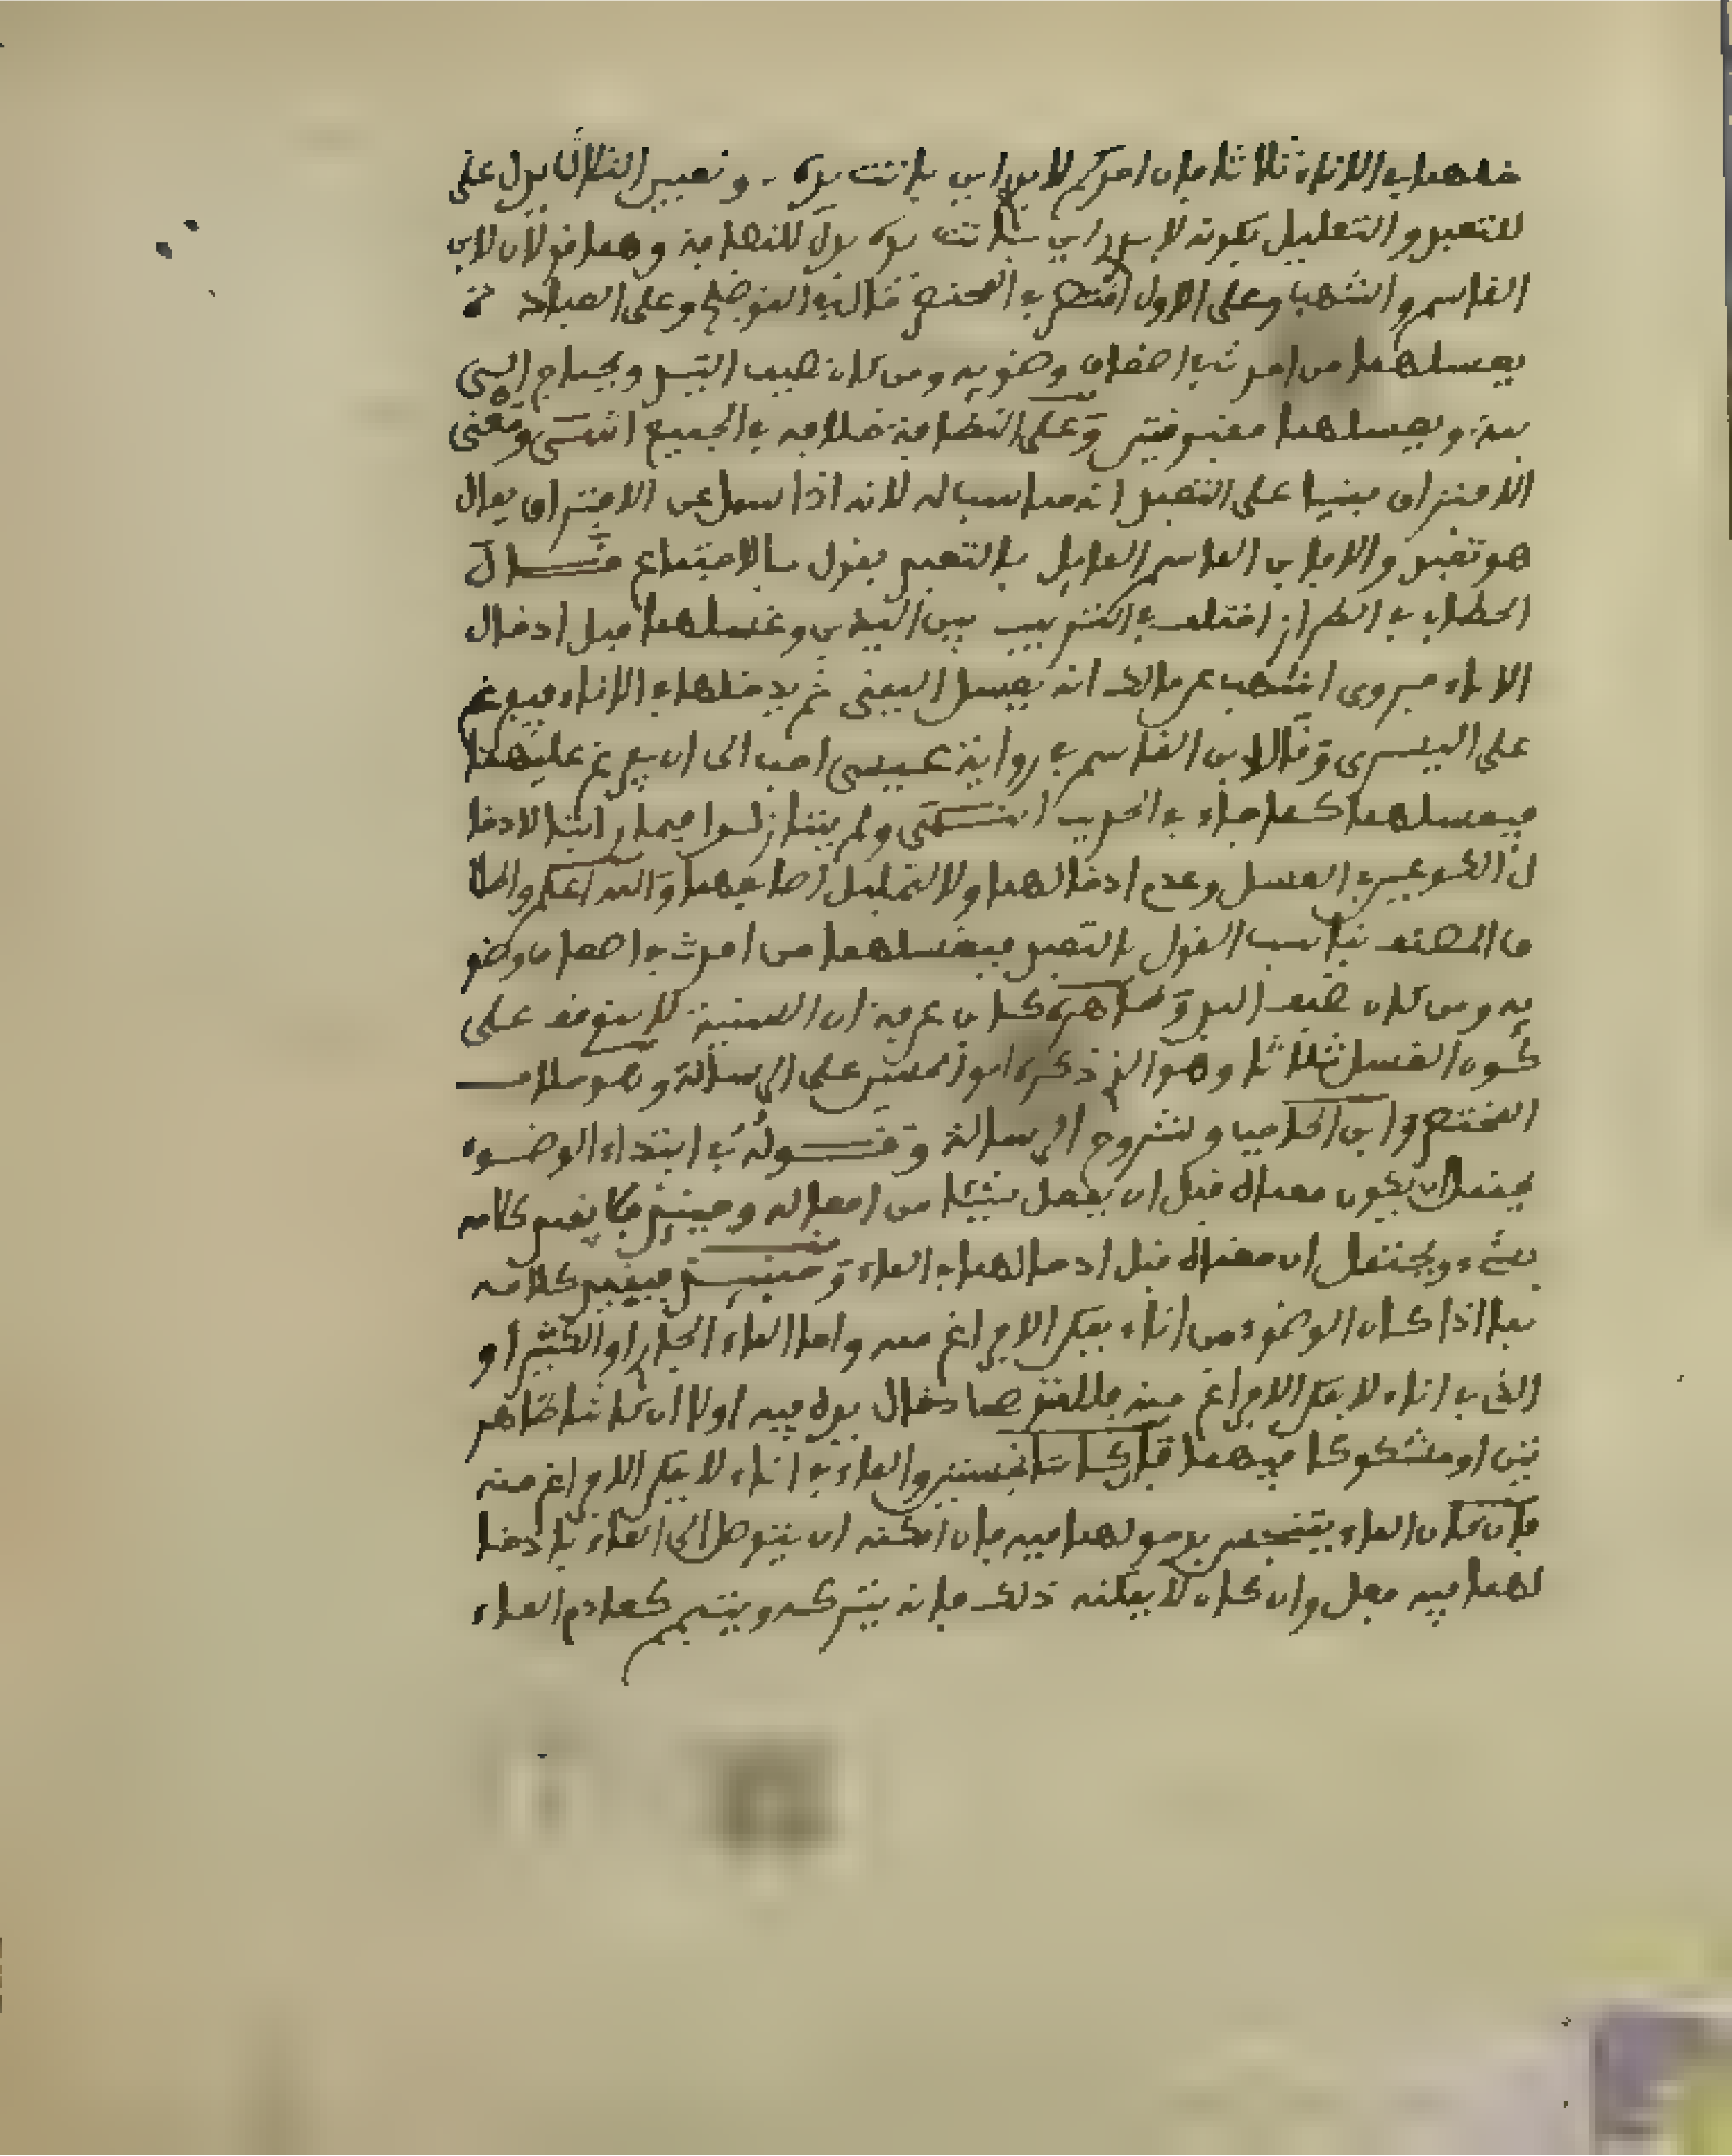 خلهما في الاناء ثلاثا فان احدكم لا يدرى اين باتت يده . وتعيين الثلاث يدل على
للتعبد والتعليل بكونه لا يدرى اين باتت يده يدل للنظافة وهما قولان لابن
القاسم واشهب وعلى الاول اقتصر في المختصر قال في التوضيح وعلى العبادة
يغسلهما من احدث في اضعاف وضويه ومن كان نظيف اليد ويحتاج الى
نية ويغسلهما مفترقتين وعلى النظافة خلافه في الجميع انتهى ومعنى
الافتراق مبنيا على التعبد انه مناسب له لانه اذا سيل عن الافتراق يقال
هو تعبد والا فابن القاسم القايل بالتعبد يقول بالاجتماع قال
الحطاب في الطراز اختلف في الترتيب بين اليدين وغسلهما قبل ادخال
الاناء فروى اشهب عن مالك انه يغسل اليمنى ثم يدخلها في الاناء فيفرغ
على اليسرى وقال ابن القاسم في رواية عيسى احب الي ان يفرغ عليهما
فيغسلهما كما جاء في الحديث انتهى ولم يتنازلوا فيما رايته لادخا
ل الكوعين في الغسل وعدم ادخالهما ولا لتخليل اصابعهما والله اعلم واطلا
ق المصنف يناسب القول بالتعبد فيغسلهما من احدث في اضعاف وضو
يه ومن كان نظيف اليد وظاهر كلام ابن عرفة ان السنية لا تتوقف على
كون الغسل ثلاثا وهو الذي ذكره ابو الحسن على الرسالة وهو خلاف
المختصر وابن الحاجب وشروح الرسالة وقوله في ابتداء الوضوء
يحتمل ان يكون معناه قبل ان يفعل شيئا من افعاله وحينئذ فلا يقيد كلامه
بشيء ويحتمل ان معناه قبل ادخالهما في الماء وحينئذ فيقيد كلامه
بما اذا كان الوضوء من اناء يمكن الافراغ منه واما الماء الجاري او الكثير او
الذي في اناء لا يمكن الافراغ منه فللمتوضئ ادخال يده فيه اولا ان كانتا طاهر
تين او مشكوكا فيهما فان كانتا نجستين والماء في اناء لا يمكن الافراغ منه
فان كان الماء يتنجس بدخولهما فيه فان امكنه ان يتوصل الى الماء بادخا
لهما فيه فعل وان كان لا يمكنه ذلك فانه يتركه ويتيمم كعادم الماء